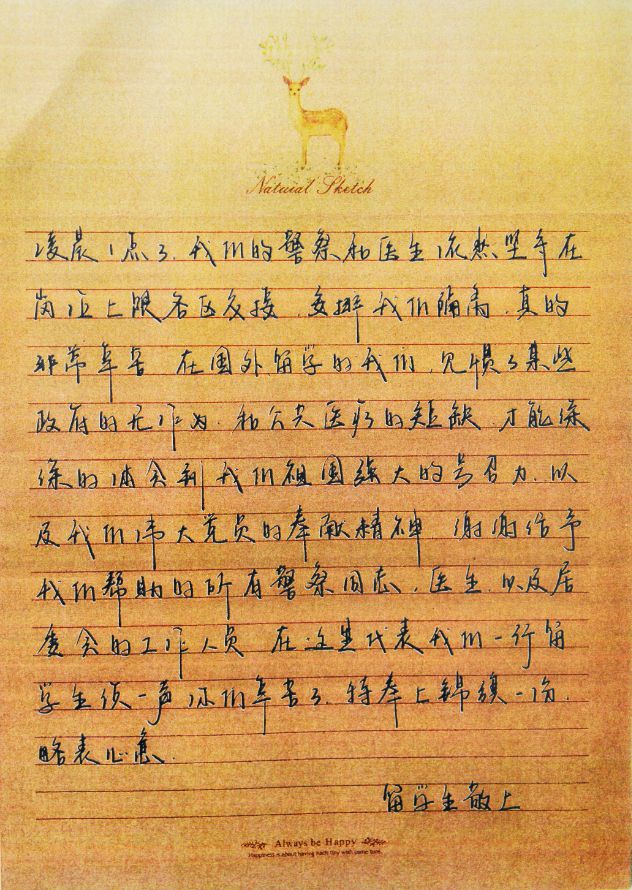 Natural Sketch
凌晨1点了，我们的警察和医生依然坚守在
岗位上跟各区交接，安排我们隔离，真的
非常辛苦 在国外留学的我们，见惯了某些
政府的无作为，和公共医疗的短缺 才能深
深的体会到我们祖国强大的号召力，以
及我们伟大党员的奉献精神 谢谢给予
我们帮助的所有警察同志，医生，以及居
委会的工作人员 在这里代表我们一行留
学生说一声你们辛苦了，特奉上锦旗一份，
略表心意.
留学生敬上
Always be Happy
Happiness is about having each tiny wish come true.